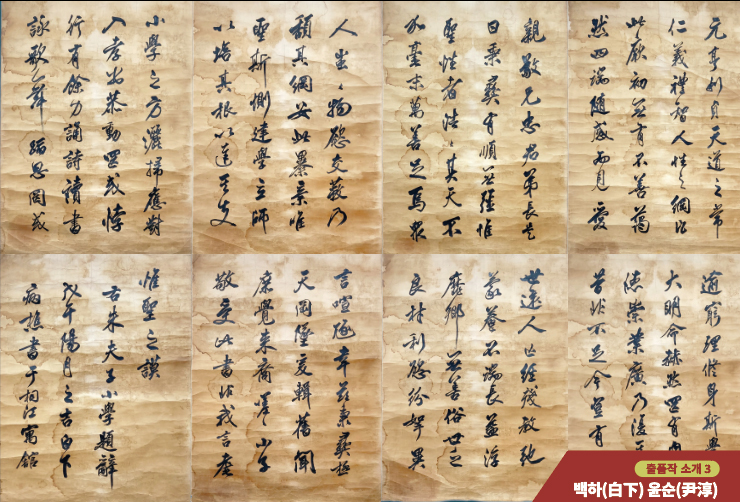 元亨利貞天道之常
仁義禮智人性之綱凡
此厥初無有不善藹
然四端隨感而見愛
親敬兄忠君弟長是
曰秉彝有順無彊惟
聖性者浩浩其天不
加毫末萬善足焉衆
人蚩蚩物慾交蔽乃
頹其綱安此暴棄惟
聖斯惻建學立師
以培其根以達其支
小學之方灑掃應對
入孝出恭動罔或悖
行有餘力誦詩讀書
詠歌舞蹈思罔或
逾窮理修身斯學
大明命赫然罔有內
德崇業廣乃復其
昔非不足今豈有
世遠人亡經殘敎弛
蒙養不端長益浮
靡鄉無善俗世乏
良材利慾紛挐異
言喧豗幸茲秉彝極
天罔墜爰輯舊聞
庶覺來裔嗟嗟小子
敬受此書匪我言耄
惟聖之謨
右朱夫子小學題辭
戊午陽月之吉白下
病樵書于桐江寓館
출품작 소개 3
백하(白下) 윤순(尹淳)